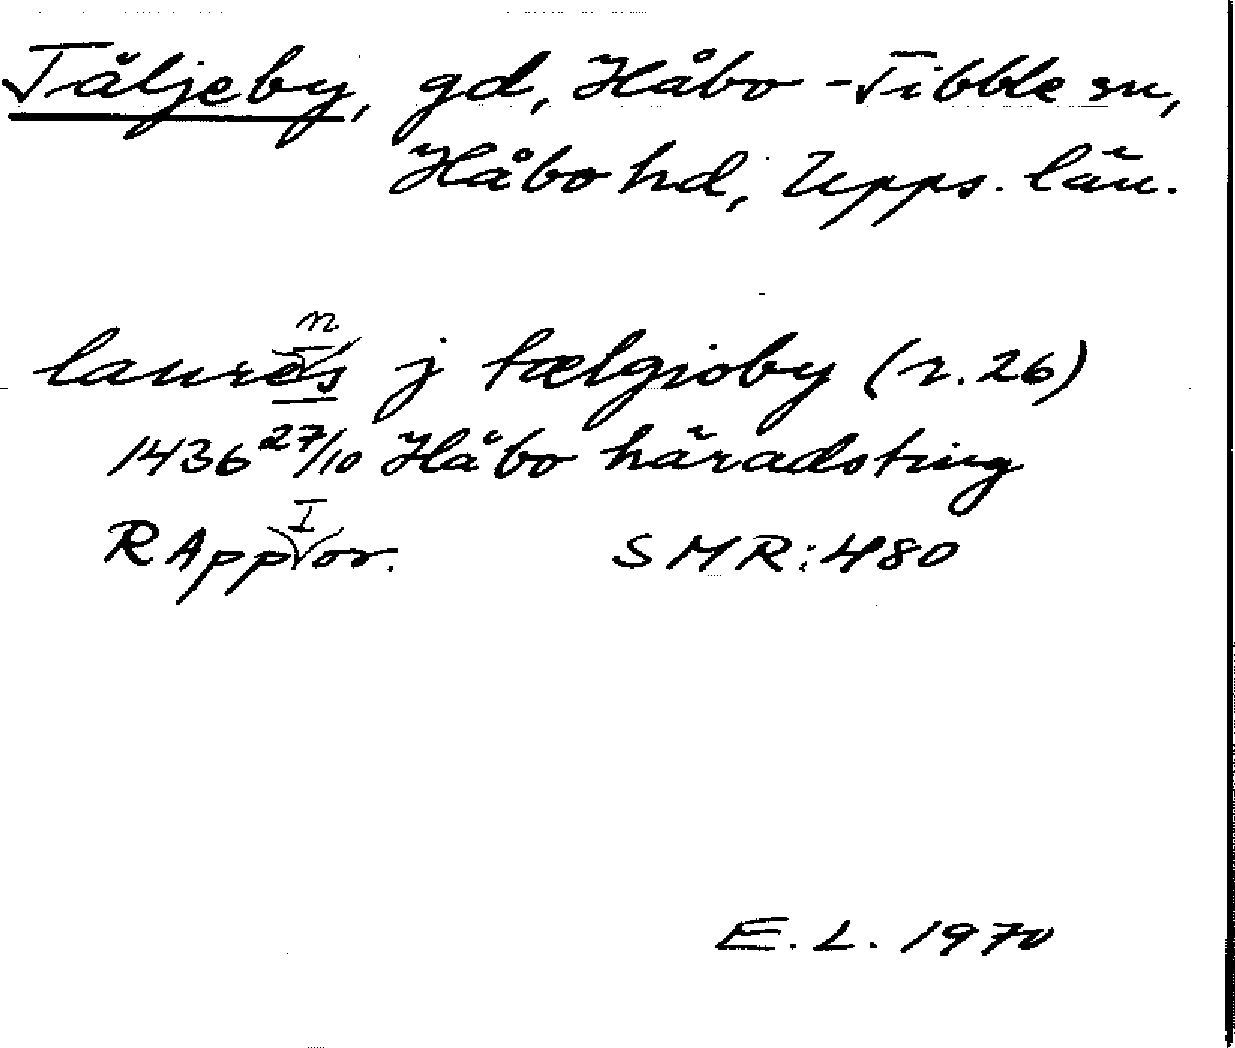 Täljeby, gd, Håbo-Tibble sn,
Håbo hd, Upps. län.
laurens j tælgioby (r. 26)
1436 27/10 Håbo häradsting
R App I or. SMR: 480
E. L. 1970